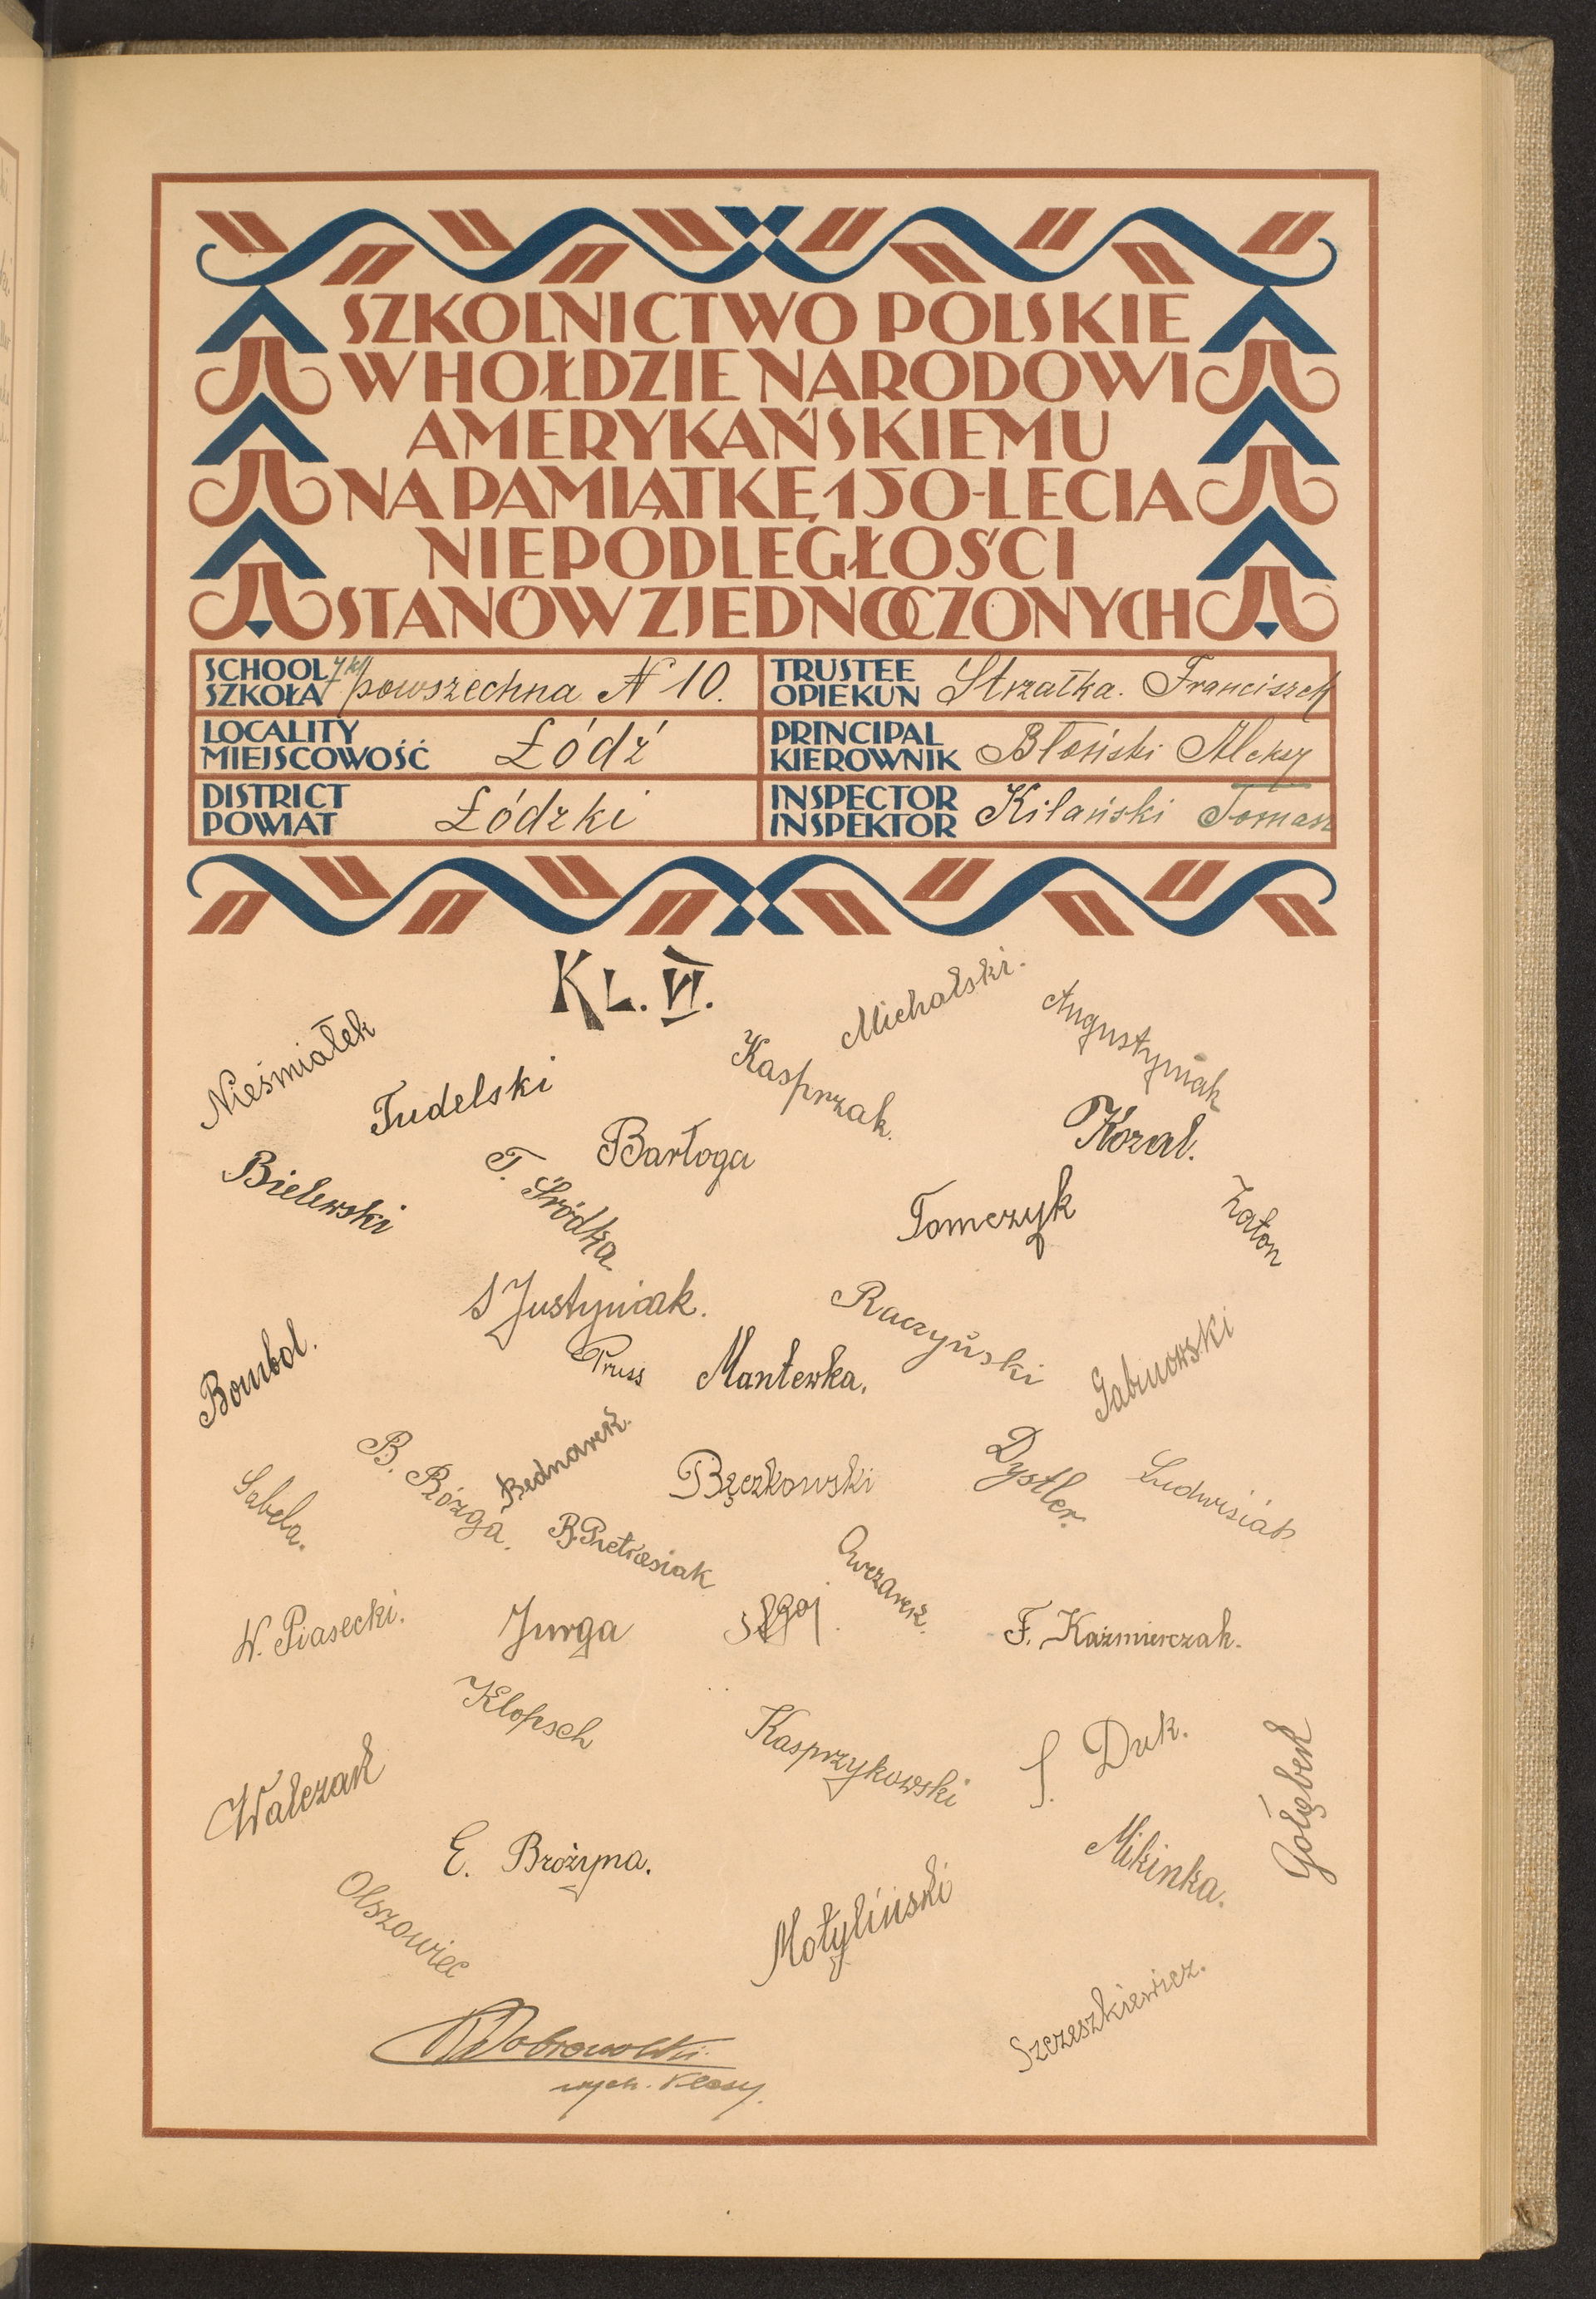 SZKOLNICTWO POLSKIE
W HOŁDZIE NARODOWI
AMERYKAŃSKIEMU
NA PAMIĄTKĘ 150-LECIA
NIEPODLEGŁOŚCI
STANÓW ZJEDNOCZONYCH
SCHOOL
SZKOŁA
7 kl powszechna N 10.
TRUSTEE
OPIEKUN
Strzałka. Franciszek
LOCALITY
MIEJSCOWOŚĆ
Łódź
PRINCIPAL
KIEROWNIK
Błoński Aleksy
DISTRICT
POWIAT
Łódzki
INSPECTOR
INSPEKTOR
Kilański Tomasz
KL. VI.
Michalski.
Augustyniak
Nieśmiałek
Kasprzak.
Tudelski
Bartoga
Koral.
Bielewski
T. Śródka.
Tomczyk
Zaton
S Justyniak.
Raczyński
Bombol.
Pruss
Mantewka.
Gabnowski
Sabela.
B. Rózga.
Bednarek.
Bęczkowski
Dystler.
Ludwisiak
B. Pietrasiak
Owczarek.
W. Piasecki.
Jurga
F. Kaźmierczak.
Klopsch
Kasprzykowski
J. Duk.
Gołąbek
Walczak
E. Brożyna.
Mikinka.
Olszowiec
Motyliński
Szczeszkiewicz.
Dobrowolski.
wych. klasy.